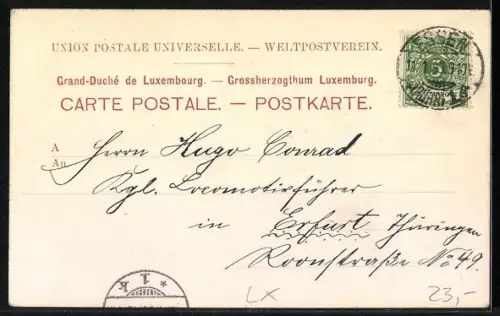 UNION POSTALE UNIVERSELLE. — WELTPOSTVEREIN.
Grand-Duché de Luxembourg. — Grossherzogthum Luxemburg.
CARTE POSTALE. — POSTKARTE.
ESSEN
5
(RUHR)
A
An
Herrn Hugo Conrad
Kgl. Locomotivführer
in Erfurt Thüringen
Roonstraße No 49.
* 1 k
LX
23,-